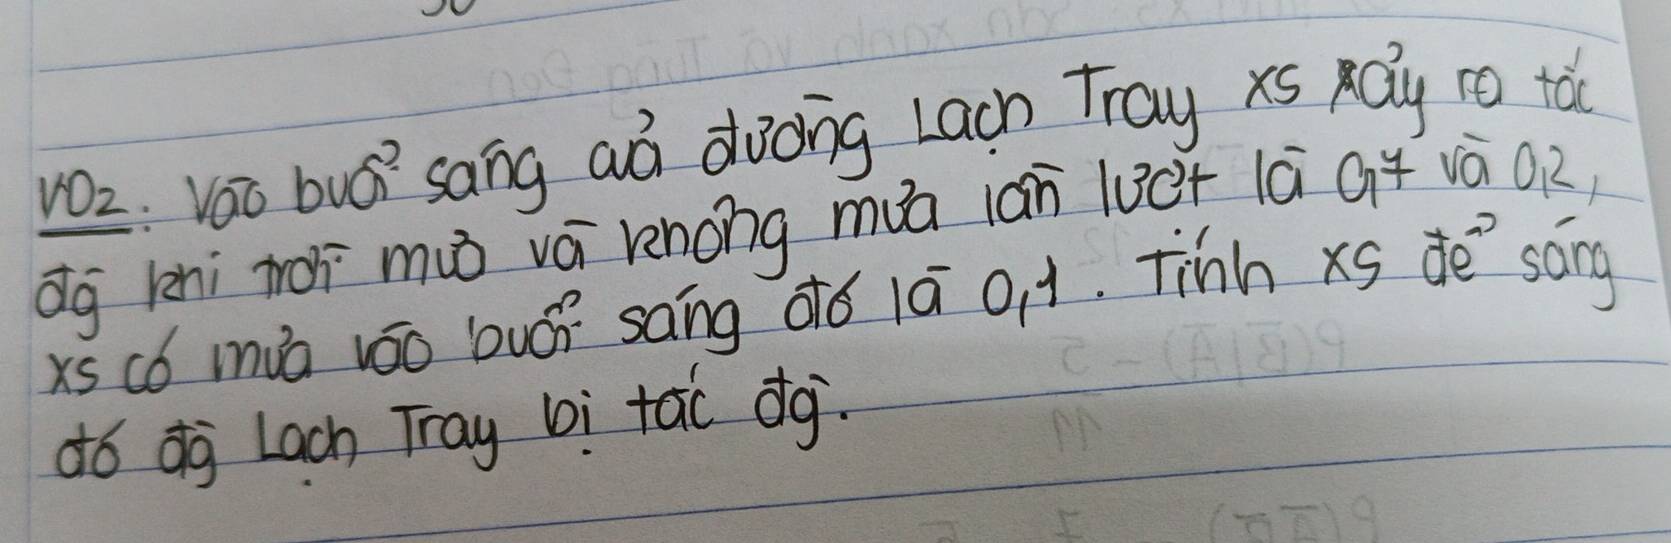 VD2: Vào buổi sáng củả đường Lạch Tray xs xảy ra tắc
đg khi trời mưa và không mưa lần lượt là 0,7 và 0,2,
xs có mưa vào buổi sáng đó là 0,1. Tính xs để sáng
đó đg Lạch Tray bị tắc đg.